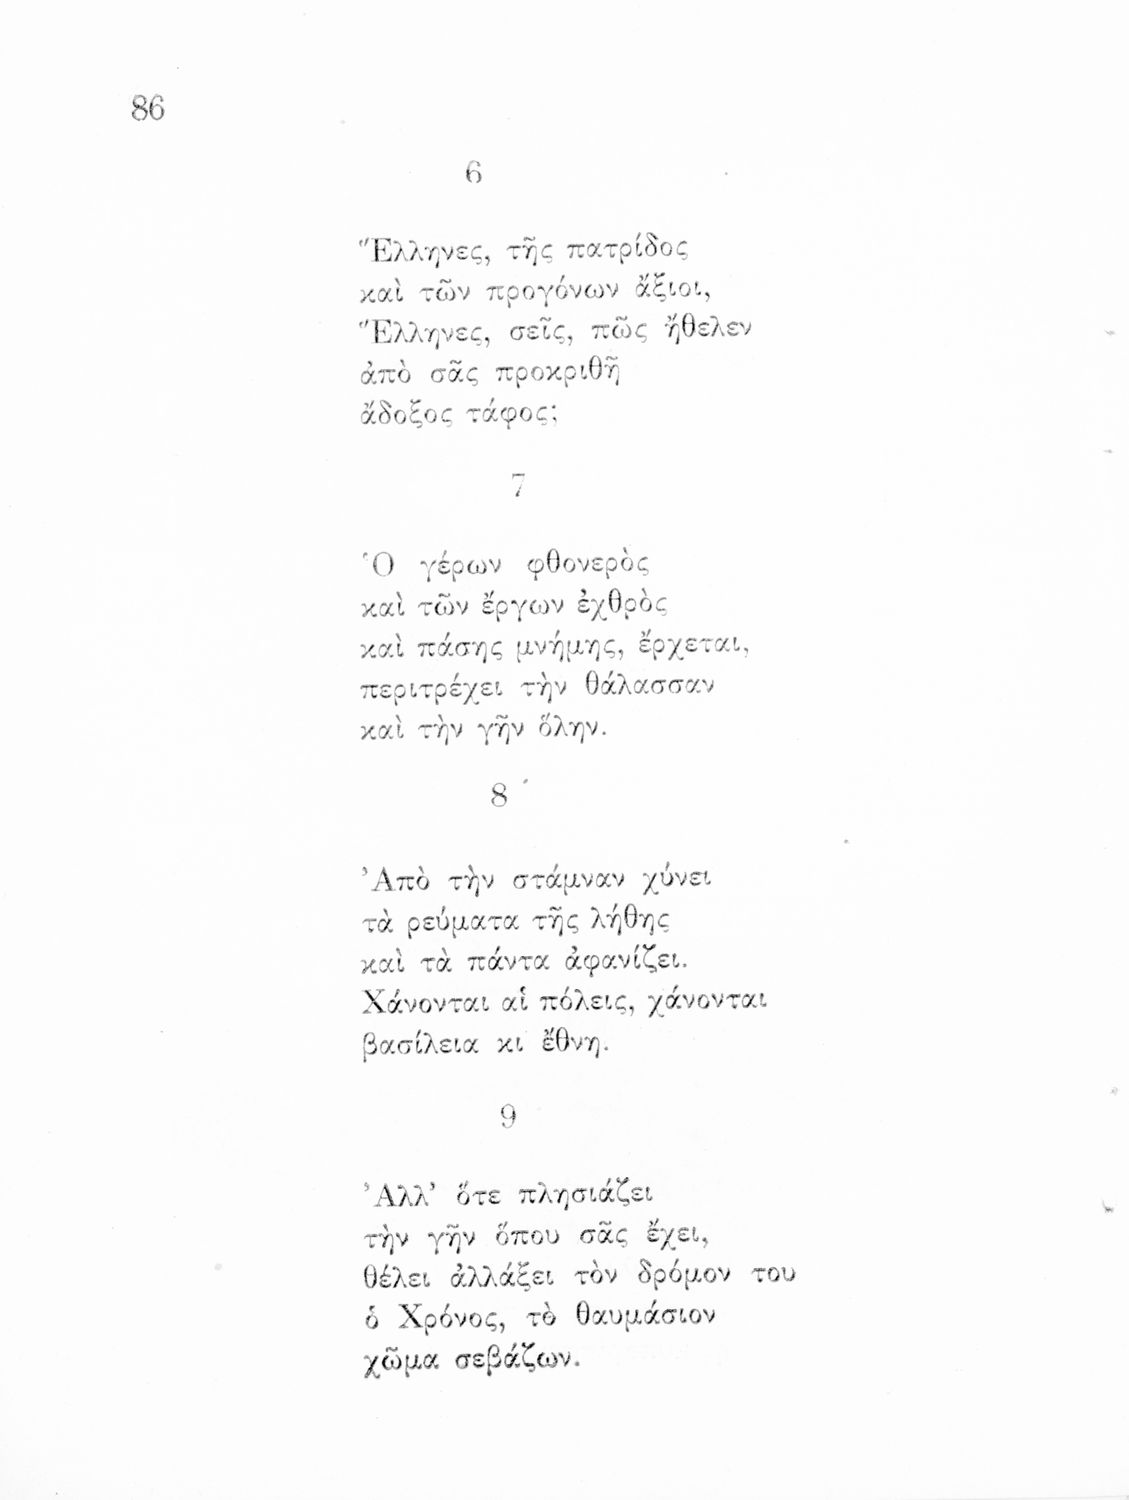 86
6
Ἕλληνες, τῆς πατρίδος
καὶ τῶν προγόνων ἄξιοι,
Ἕλληνες, σεῖς, πῶς ἤθελεν
ἀπὸ σᾶς προκριθῆ
ἄδοξος τάφος;
7
Ὁ γέρων φθονερὸς
καὶ τῶν ἔργων ἐχθρὸς
καὶ πάσης μνήμης, ἔρχεται,
περιτρέχει τὴν θάλασσαν
καὶ τὴν γῆν ὅλην.
8
Ἀπὸ τὴν στάμναν χύνει
τὰ ρεύματα τῆς λήθης
καὶ τὰ πάντα ἀφανίζει.
Χάνονται αἱ πόλεις, χάνονται
βασίλεια κι ἔθνη.
9
Ἀλλ’ ὅτε πλησιάζει
τὴν γῆν ὅπου σᾶς ἔχει,
θέλει ἀλλάξει τὸν δρόμον του
ὁ Χρόνος, τὸ θαυμάσιον
χῶμα σεβάζων.